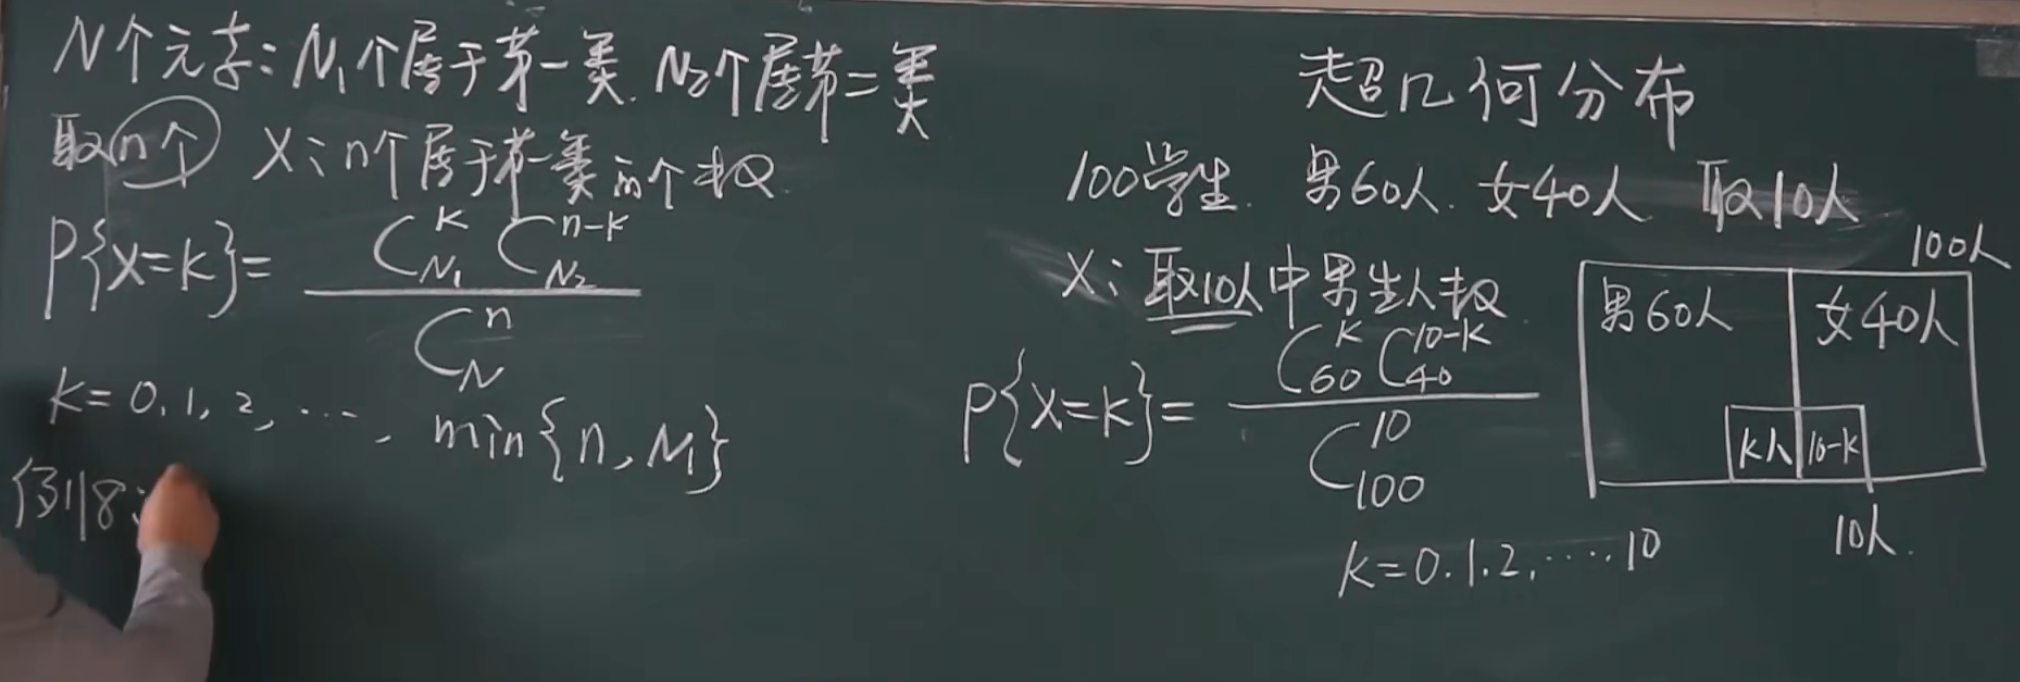 N个元素：N₁个属于第一类．N₂个属第二类
取n个 X：n个属于第一类的个数．
P{X=k}= C_{N₁}^{k} C_{N₂}^{n-k} / C_{N}^{n}
k=0.1, 2, …, min{n, N₁}
例8：
超几何分布
100学生．男60人．女40人 取10人
X：取10人中男生人数
P{X=k}= C_{60}^{k} C_{40}^{10-k} / C_{100}^{10}
k=0.1.2.……10
100人
男60人 女40人
k人 10-k
10人．